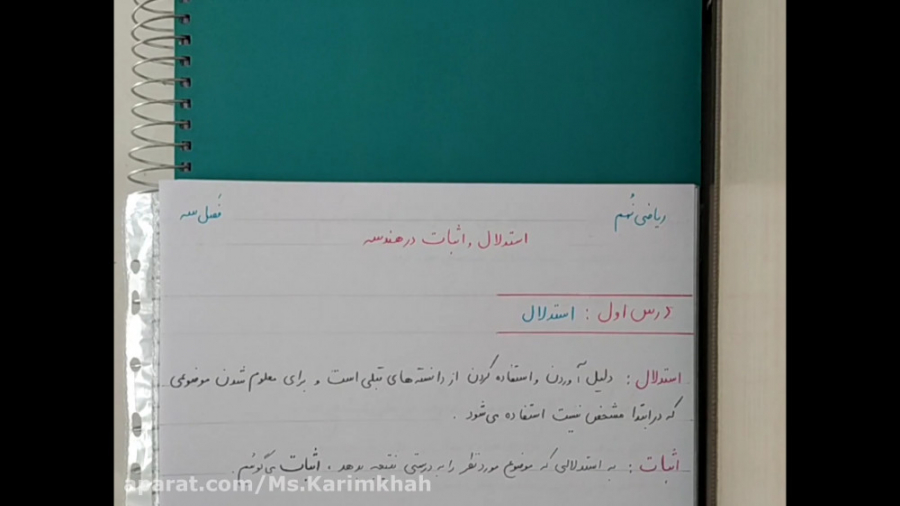 ریاضی نهم
فصل سه
استدلال و اثبات در هندسه
درس اول : استدلال
استدلال : دلیل آوردن و استفاده کردن از دانسته های قبلی است و برای معلوم شدن موضوعی
که در ابتدا مشخص نیست استفاده می شود .
اثبات : به استدلالی که موضوع مورد نظر را به درستی نتیجه بدهد ، اثبات می گوئیم .
aparat.com/Ms.Karimkhah